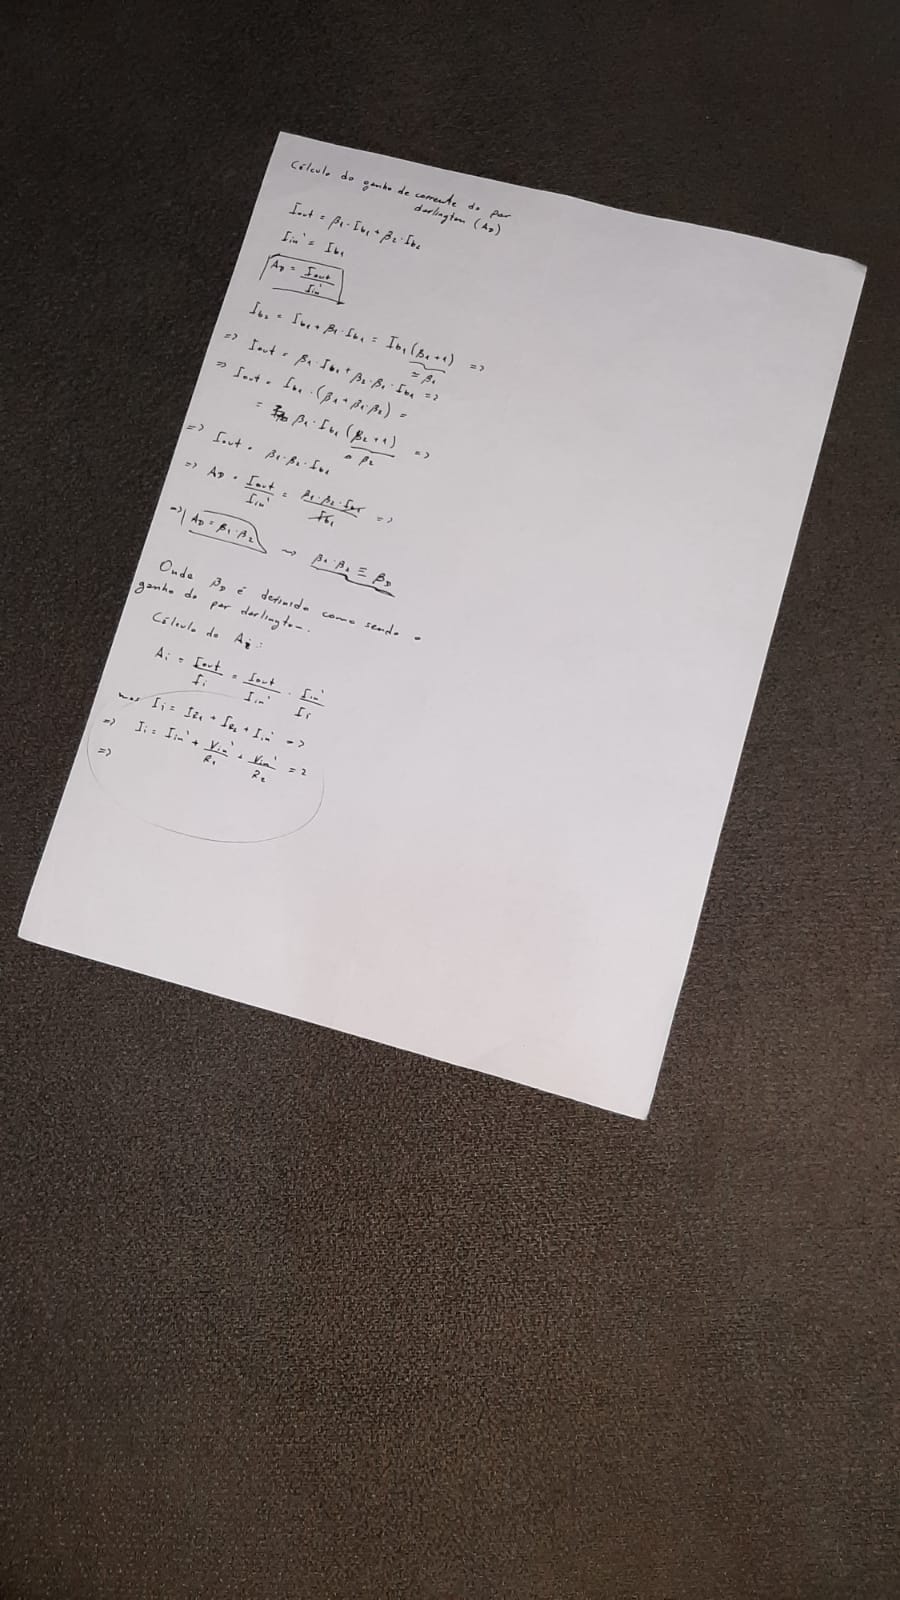 Cálculo do ganho de corrente do par
darlington (AD)
Iout = β1·Ib1 + β2·Ib2
Iin' = Ib1
AD = Iout/Iin'
Ib2 = Ib1 + β1·Ib1 = Ib1(β1+1) =>
≈ β1
=> Iout = β1·Ib1 + β2·β1·Ib1 =>
=> Iout = Ib1·(β1+β1·β2) =
= β1·Ib1(β2+1) =>
≈ β2
=> Iout = β1·β2·Ib1
=> AD = Iout/Iin' = β1·β2·Ib1/Ib1 =>
=> AD = β1·β2 → β1·β2 ≡ βD
Onde βD é definido como sendo o
ganho do par darlington.
Cálculo do Ai:
Ai = Iout/Ii = Iout/Iin' · Iin'/Ii
mas Ii = IR1 + IR2 + Iin' =>
=> Ii = Iin' + Vin'/R1 + Vin'/R2 =>
=>